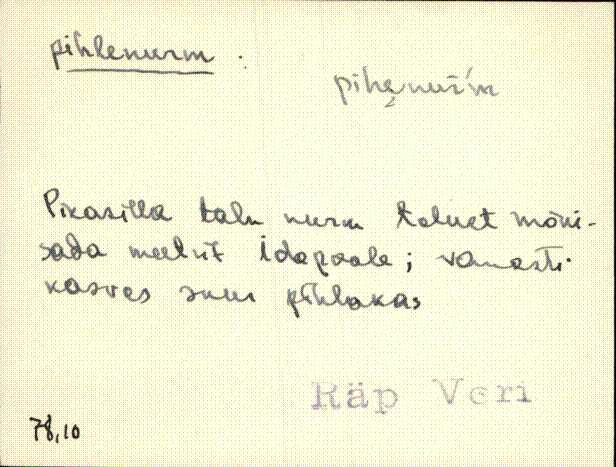 pihlenurm.
pihęnuŕm
Pikasilla talu nurm talust mõni-
sada meetrit idapoole; vanasti
kasves suur pihlakas
Räp Veri
78,10